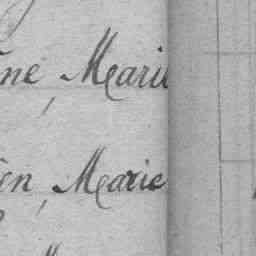 ne, Marie
en, Marie